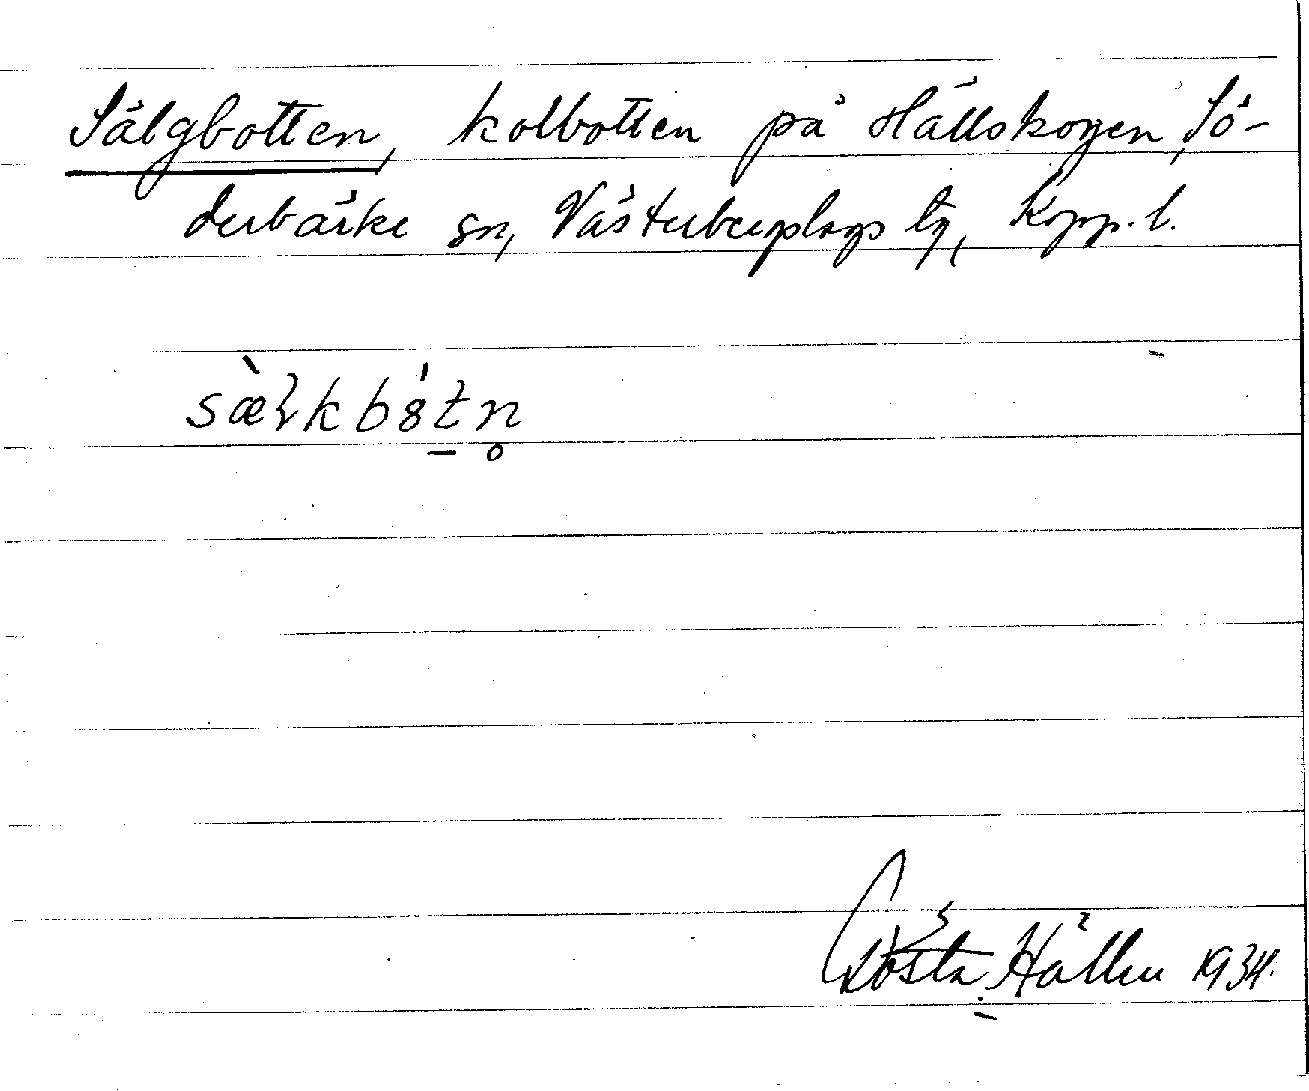 Sälgbotten, kolbotten på Hällskogen, Sö-
derbärke sn, Västerbergslags tg, Kopp. l.
sæ̀lkbǿt̠n̥
Gösta Hällen 1934.